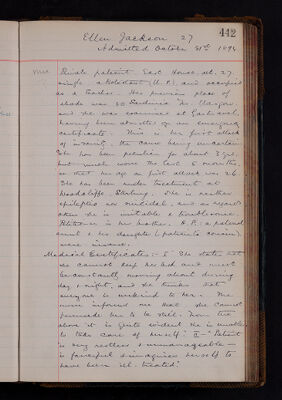 442
Ellen Jackson 27
Admitted October 31st 1894
Private patient East House, aet. 27
single a Protestant (U.P.), and occupied
as a teacher. Her previous place of
abode was 30 Gardenia Glasgow
and she was examined at Gartnavel,
having been admitted on an emergency
certificate. This is her first attack
of insanity, the cause being uncertain.
She has been peculiar for about 3 years
but much worse the last 6 months,
so that her age on first attack was 24.
She has been under treatment at
Stirling. She is neither
epileptic nor suicidal, and as regards
others she is irritable & troublesome.
Petitioner is her brother. H.P. a paternal
aunt & his daughter (patient's cousin)
were insane.
Medical Certificates:- I "She states that
she cannot keep in bed and must
be constantly moving about during
day & night, and she thinks that
everyone is unkind to her. The
nurse informs me that she cannot
persuade her to be still. From the
above it is quite evident she is unable
to take care of herself." II "Patient
is very restless & unmanageable —
is fanciful & imagines herself to
have been ill-treated."